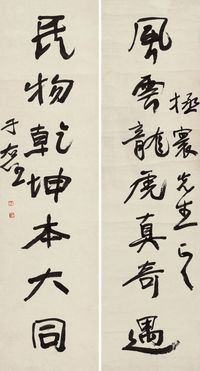 風雲龍虎真奇遇
寰先生
民物乾坤本大同
于右任